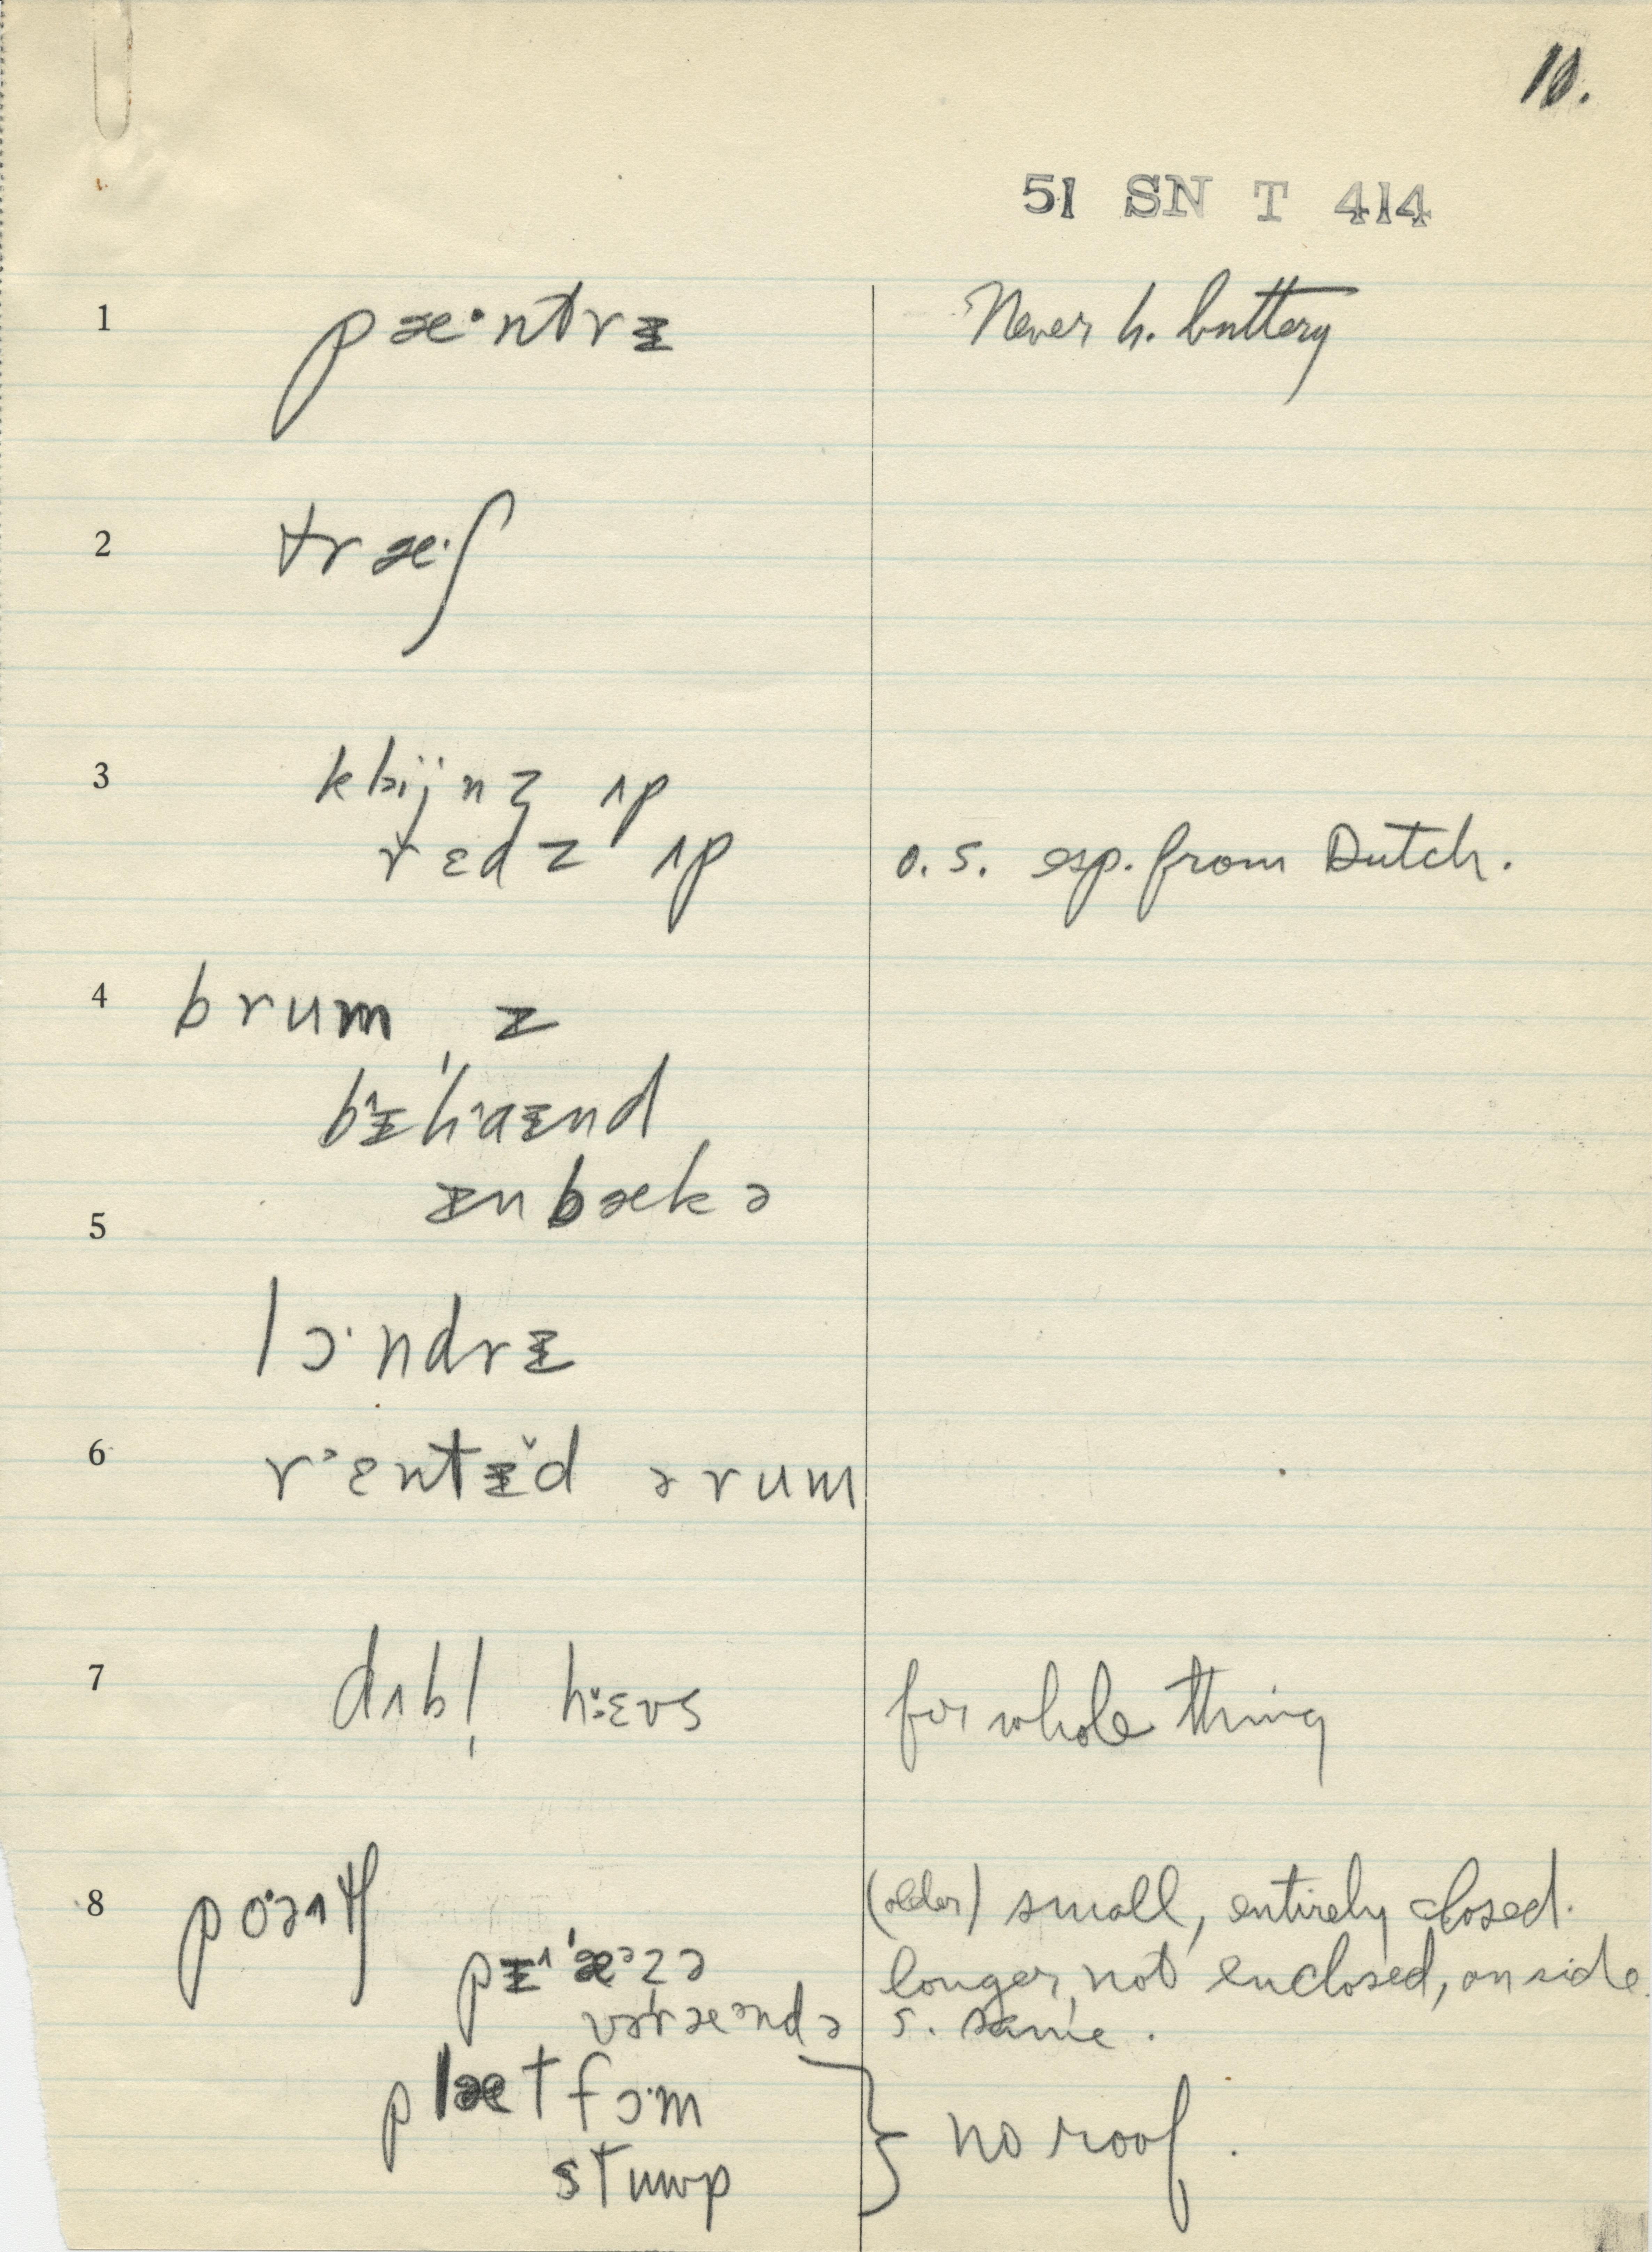 10.
51 SN T 414
1 pæ·ntrɪ Never h. buttery
2 træ·ʃ
3 klijnz ʌp
rɛdz ʌp o.s. esp. from Dutch.
4 brum z
bɪ'haɪnd
ɪn bæk ə
5
lɔ·ndrɪ
6 rᵊɛntɪ̆d ə rum
7 dʌbl̩ h:ɛʊs for whole thing
8 po·əɹtʃ (older) small, entirely closed.
pɪ'æᵊzə longer, not enclosed, on side.
və'ræᵊndə s. same.
plætfɔ·m
stuwp } no roof.